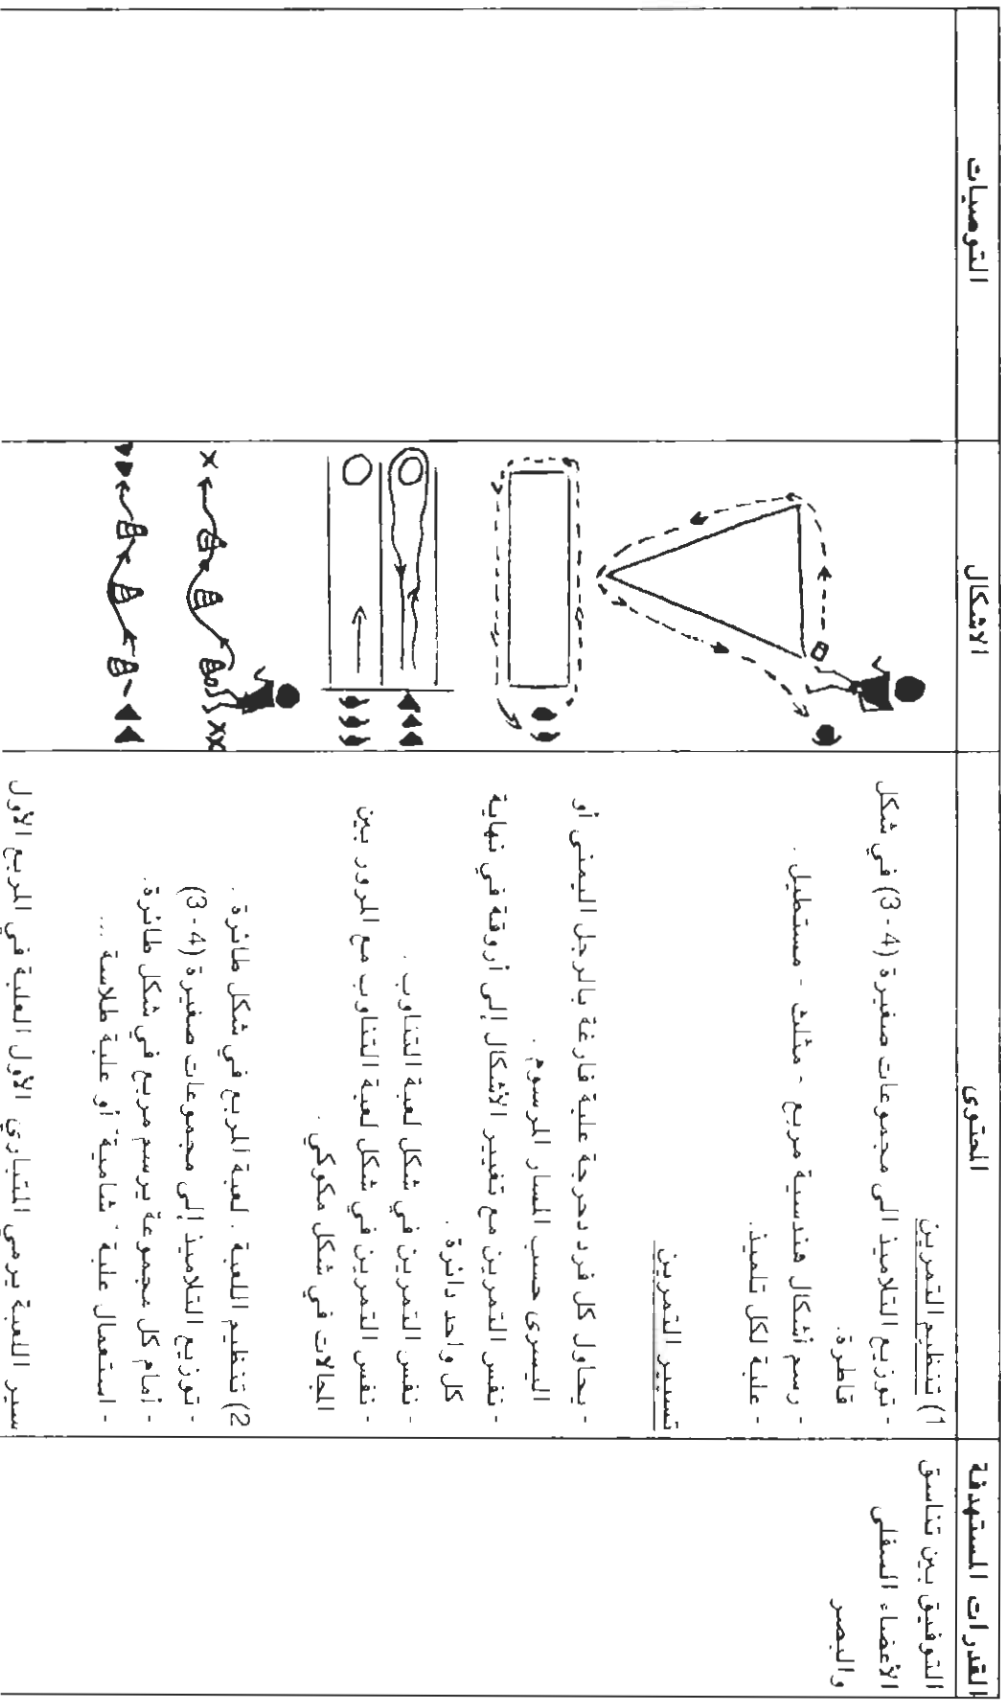 القدرات المستهدفة
المحتوى
الاشكال
التوصيات
التوفيق بين تناسق
الأعضاء السفلى
والبصر
1) تنظيم التمرين
- توزيع التلاميذ الى مجموعات صغيرة (4 - 3) في شكل
قاطرة.
- رسم أشكال هندسية مربع - مثلث - مستطيل .
- علبة لكل تلميذ.
تسيير التمرين
- يحاول كل فرد دحرجة علبة فارغة بالرجل اليمنى أو
اليسرى حسب المسار المرسوم .
- نفس التمرين مع تغيير الأشكال إلى أروقة في نهاية
كل واحد دائرة .
- نفس التمرين في شكل لعبة التناوب .
- نفس التمرين في شكل لعبة التناوب مع المرور بين
المجالات في شكل مكوكي .
2) تنظيم اللعبة . لعبة المربع في شكل طائرة .
- توزيع التلاميذ إلى مجموعات صغيرة (4 - 3)
- أمام كل مجموعة يرسم مربع في شكل طائرة.
- استعمال علبة " شامية" أو علبة طلاسة ...
سير اللعبة يرمي المتباري الأول العلبة في المربع الأول
X
XX